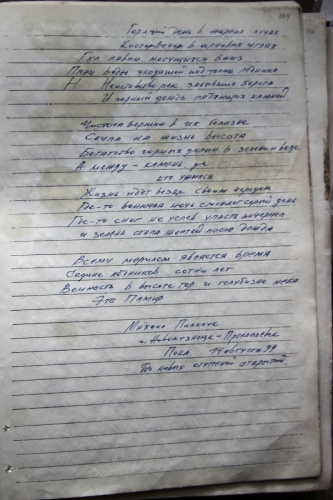 Горящий день в жарких лучах
Костёр вечер в углях
Гул лавин несущихся вниз
Плач воды уходящей под толщи ледника
И Неистовство рек заковавших берега
И горный дождь падающих камней

Чистота вершин в их белизне
Скупа на жизнь высота
Богатство горных долин в зелени и воде
А между - камень да
кто ужился
Жизнь идёт везде своим чередом
Где-то военная ночь сменяет серый день
Где-то снег не успев упасть почернел
и зелень стала желтой после дождя

Всему мерилом является время
Седине ледников сотни лет
Вечность в высоте гор и голубизне неба
Это Памир

Михаил
г. Новокузнецк - Прокопьевск
14 августа 94
До новых открытий.